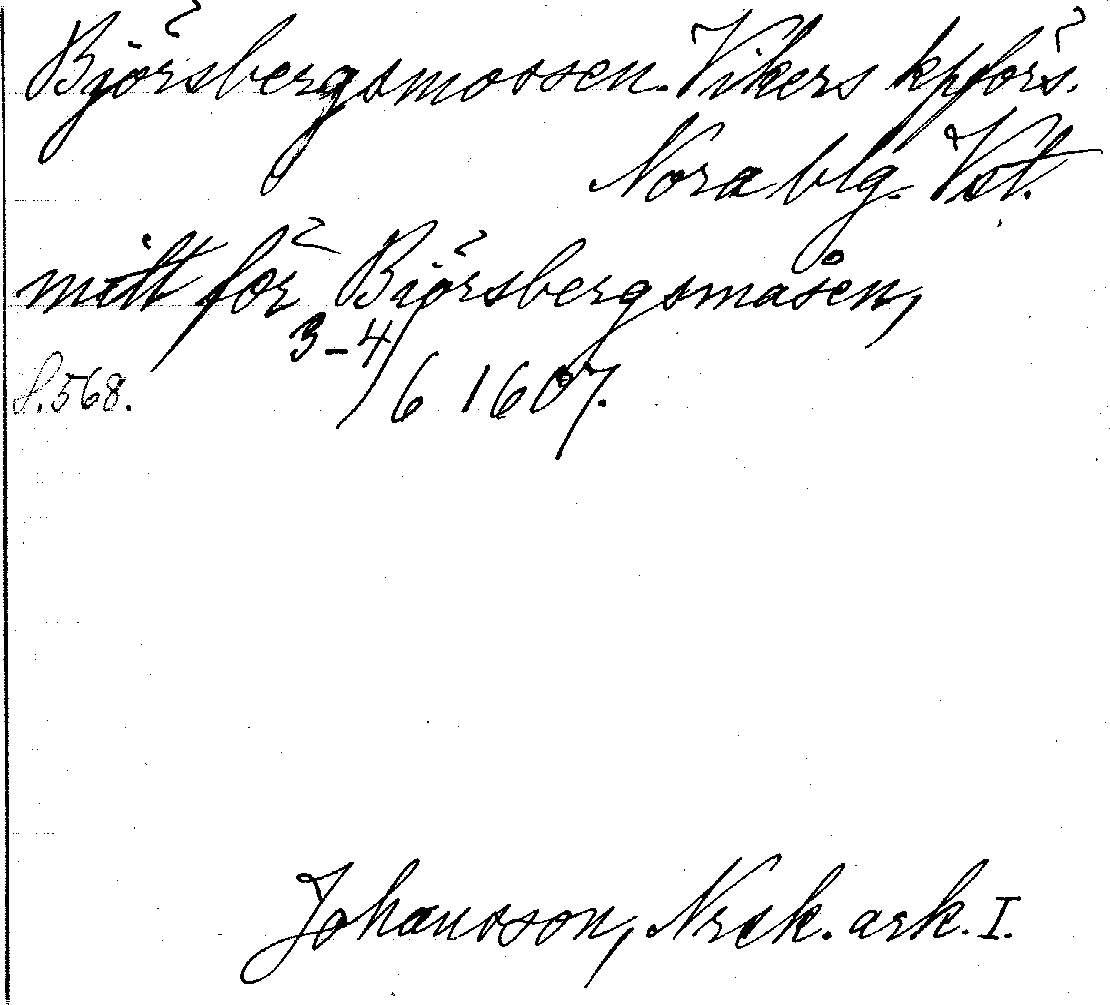 Björsbergsmossen. Vikers kpförs.
Nora blg. Vstm.
mitt för Björsbergsmåsen,
3-4/6 1607.
S. 568.
Johansson, Nrck. ark. I.